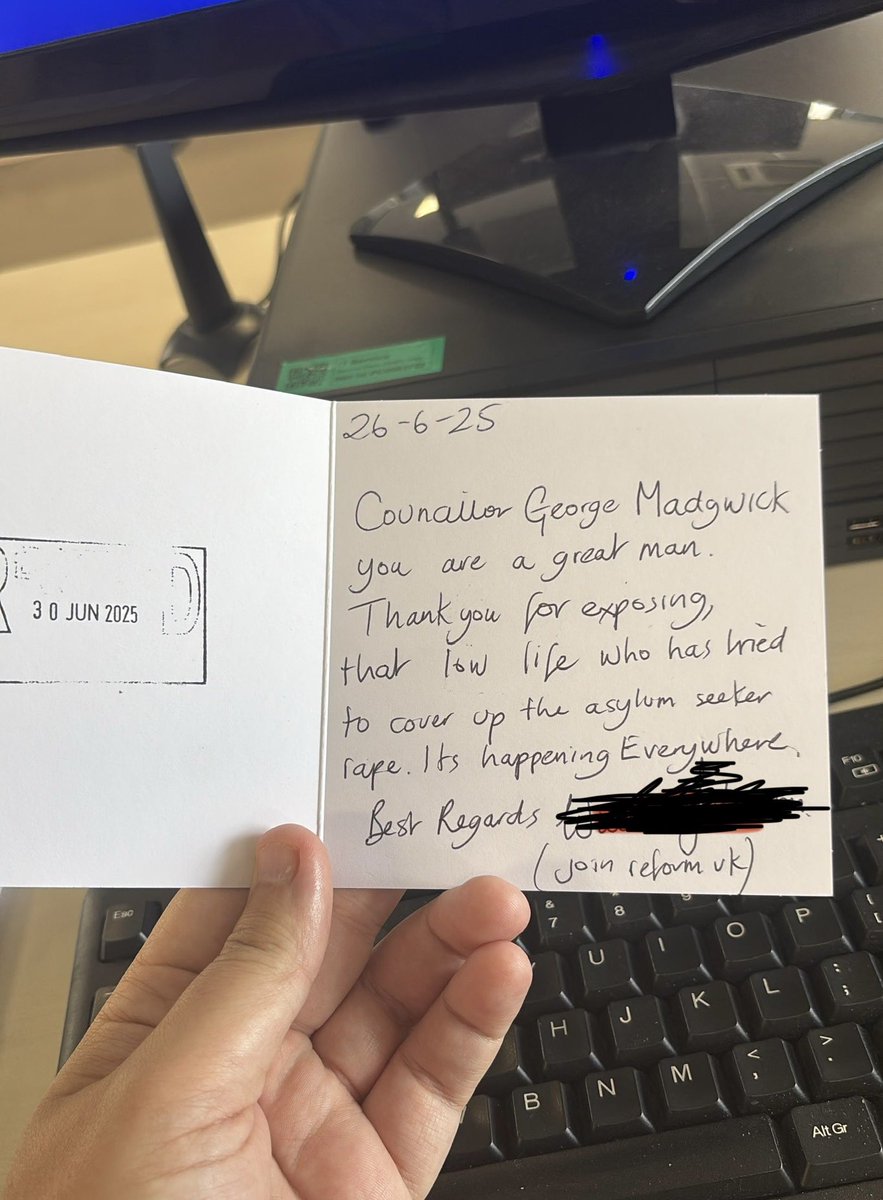 26-6-25
Counailor George Madgwick
you are a great man.
Thank you for exposing,
that low life who has tried
to cover up the asylum seeker
rape. Its happening Everywhere.
Best Regards
(join reform uk)
30 JUN 2025
Esc
F10
&
7
8
9
U
I
O
P
H
J
K
L
:
;
B
N
M
<
,
>
.
Alt Gr